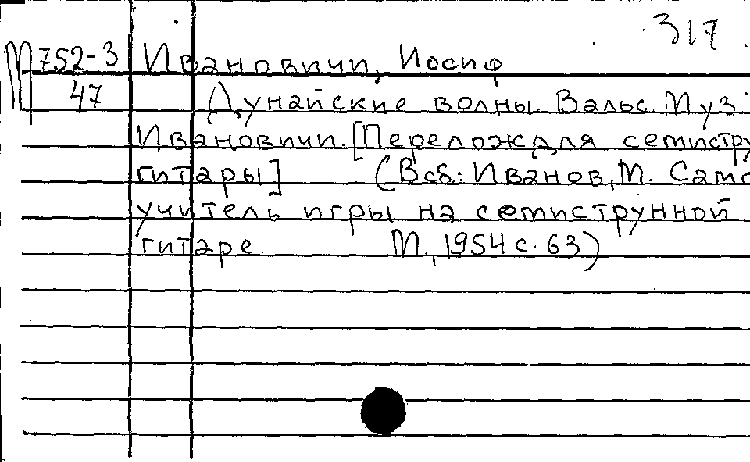 317
М752-3 Ивановичи, Иосиф
47 Дунайские волны. Вальс. Муз.
Ивановичи. [Перелож. для семистру
гитары] (В сб.: Иванов, М. Само
учитель игры на семиструнной
гитаре М., 1954 с. 63)